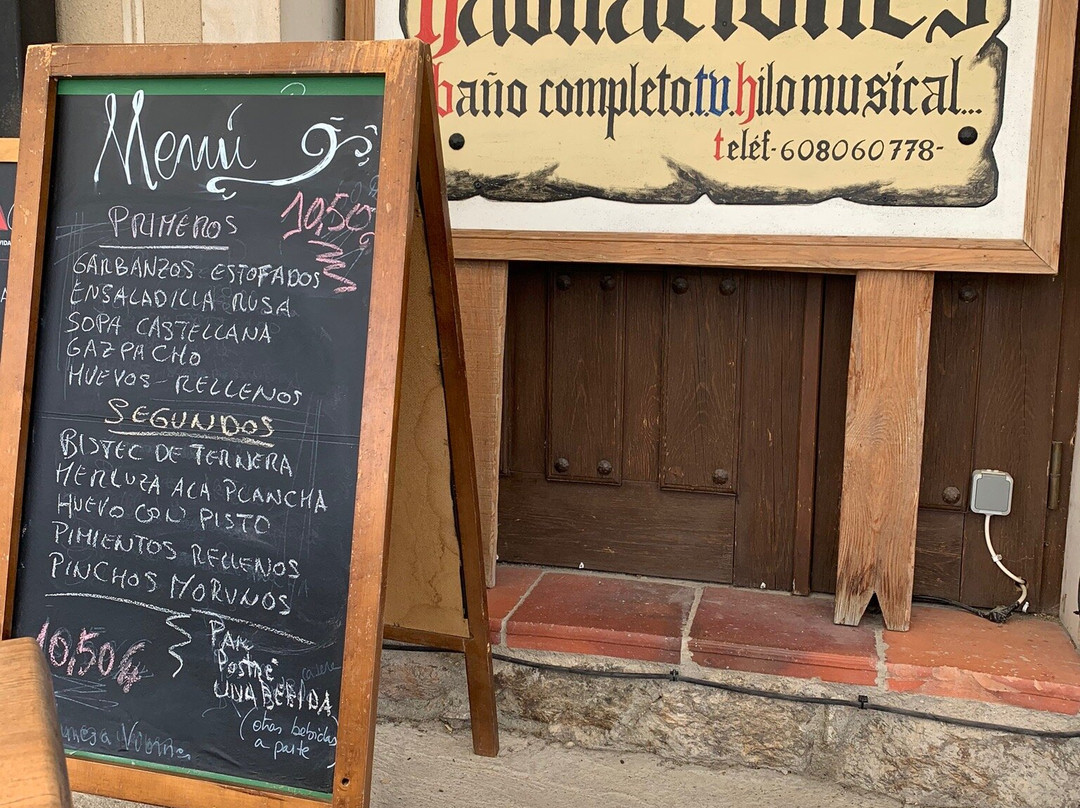 Menú
10,50€
PRIMEROS
GARBANZOS ESTOFADOS
ENSALADILLA RUSA
SOPA CASTELLANA
GAZPACHO
HUEVOS RELLENOS
SEGUNDOS
BISTEC DE TERNERA
MERLUZA A LA PLANCHA
HUEVO CON PISTO
PIMIENTOS RELLENOS
PINCHOS MORUNOS
10,50€
PAN
Postre
UNA BEBIDA
(otras bebidas
a parte
habitaciones
baño completo..t.v. hilo musical...
teléf-608060778-